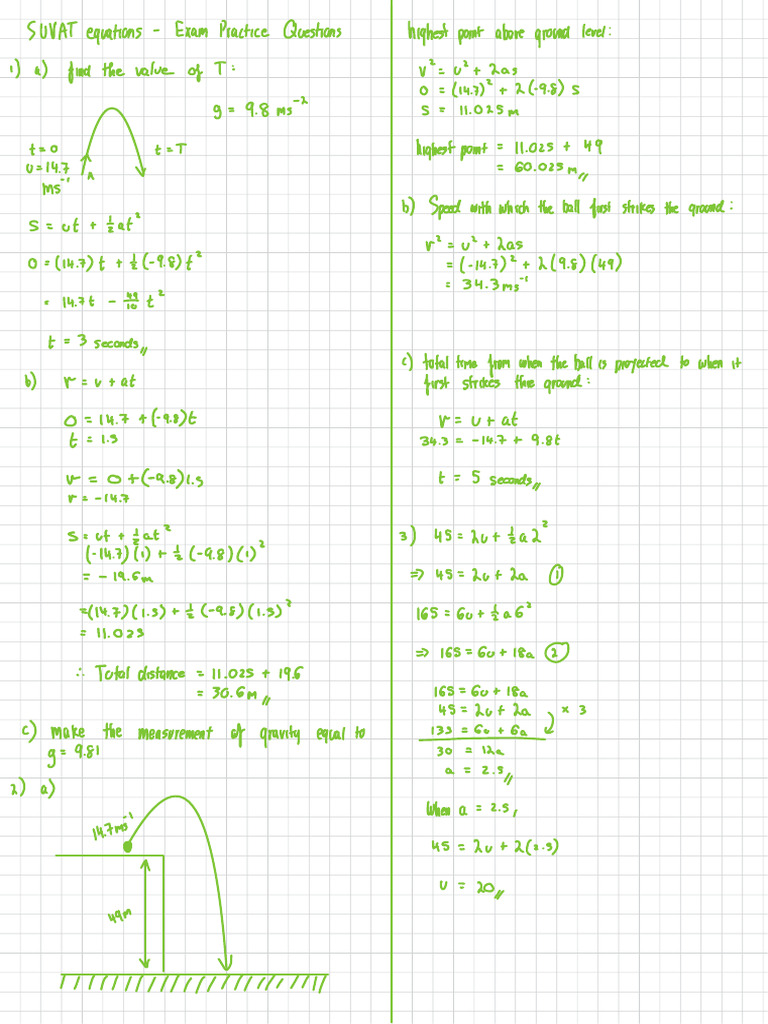 SUVAT equations - Exam Practice Questions
1) a) find the value of T:
g = 9.8 ms⁻²
t=0
u=14.7
ms⁻¹
A
t=T
S = ut + ½at²
0 = (14.7)t + ½(-9.8)t²
= 14.7t - 49/10 t²
t = 3 seconds//
b) v = u + at
0 = 14.7 + (-9.8)t
t = 1.5
v = 0 + (-9.8)1.5
v = -14.7
S = ut + ½at²
(-14.7)(1) + ½(-9.8)(1)²
= -19.6m
=(14.7)(1.5) + ½(-9.8)(1.5)²
= 11.025
∴ Total distance = 11.025 + 19.6
= 30.6m//
c) make the measurement of gravity equal to
g = 9.81
2) a)
14.7ms⁻¹
49m
highest point above ground level:
v² = u² + 2as
0 = (14.7)² + 2(-9.8) S
S = 11.025m
highest point = 11.025 + 49
= 60.025m//
b) Speed with which the ball first strikes the ground:
v² = u² + 2as
= (-14.7)² + 2(9.8)(49)
= 34.3ms⁻¹
c) total time from when the ball is projected to when it
first strikes the ground:
v = u + at
34.3 = -14.7 + 9.8t
t = 5 seconds//
3) 45 = 2u + ½a2²
=> 45 = 2u + 2a ①
165 = 6u + ½a6²
=> 165 = 6u + 18a ②
165 = 6u + 18a
45 = 2u + 2a × 3
135 = 6u + 6a
30 = 12a
a = 2.5//
When a = 2.5,
45 = 2u + 2(2.5)
u = 20//